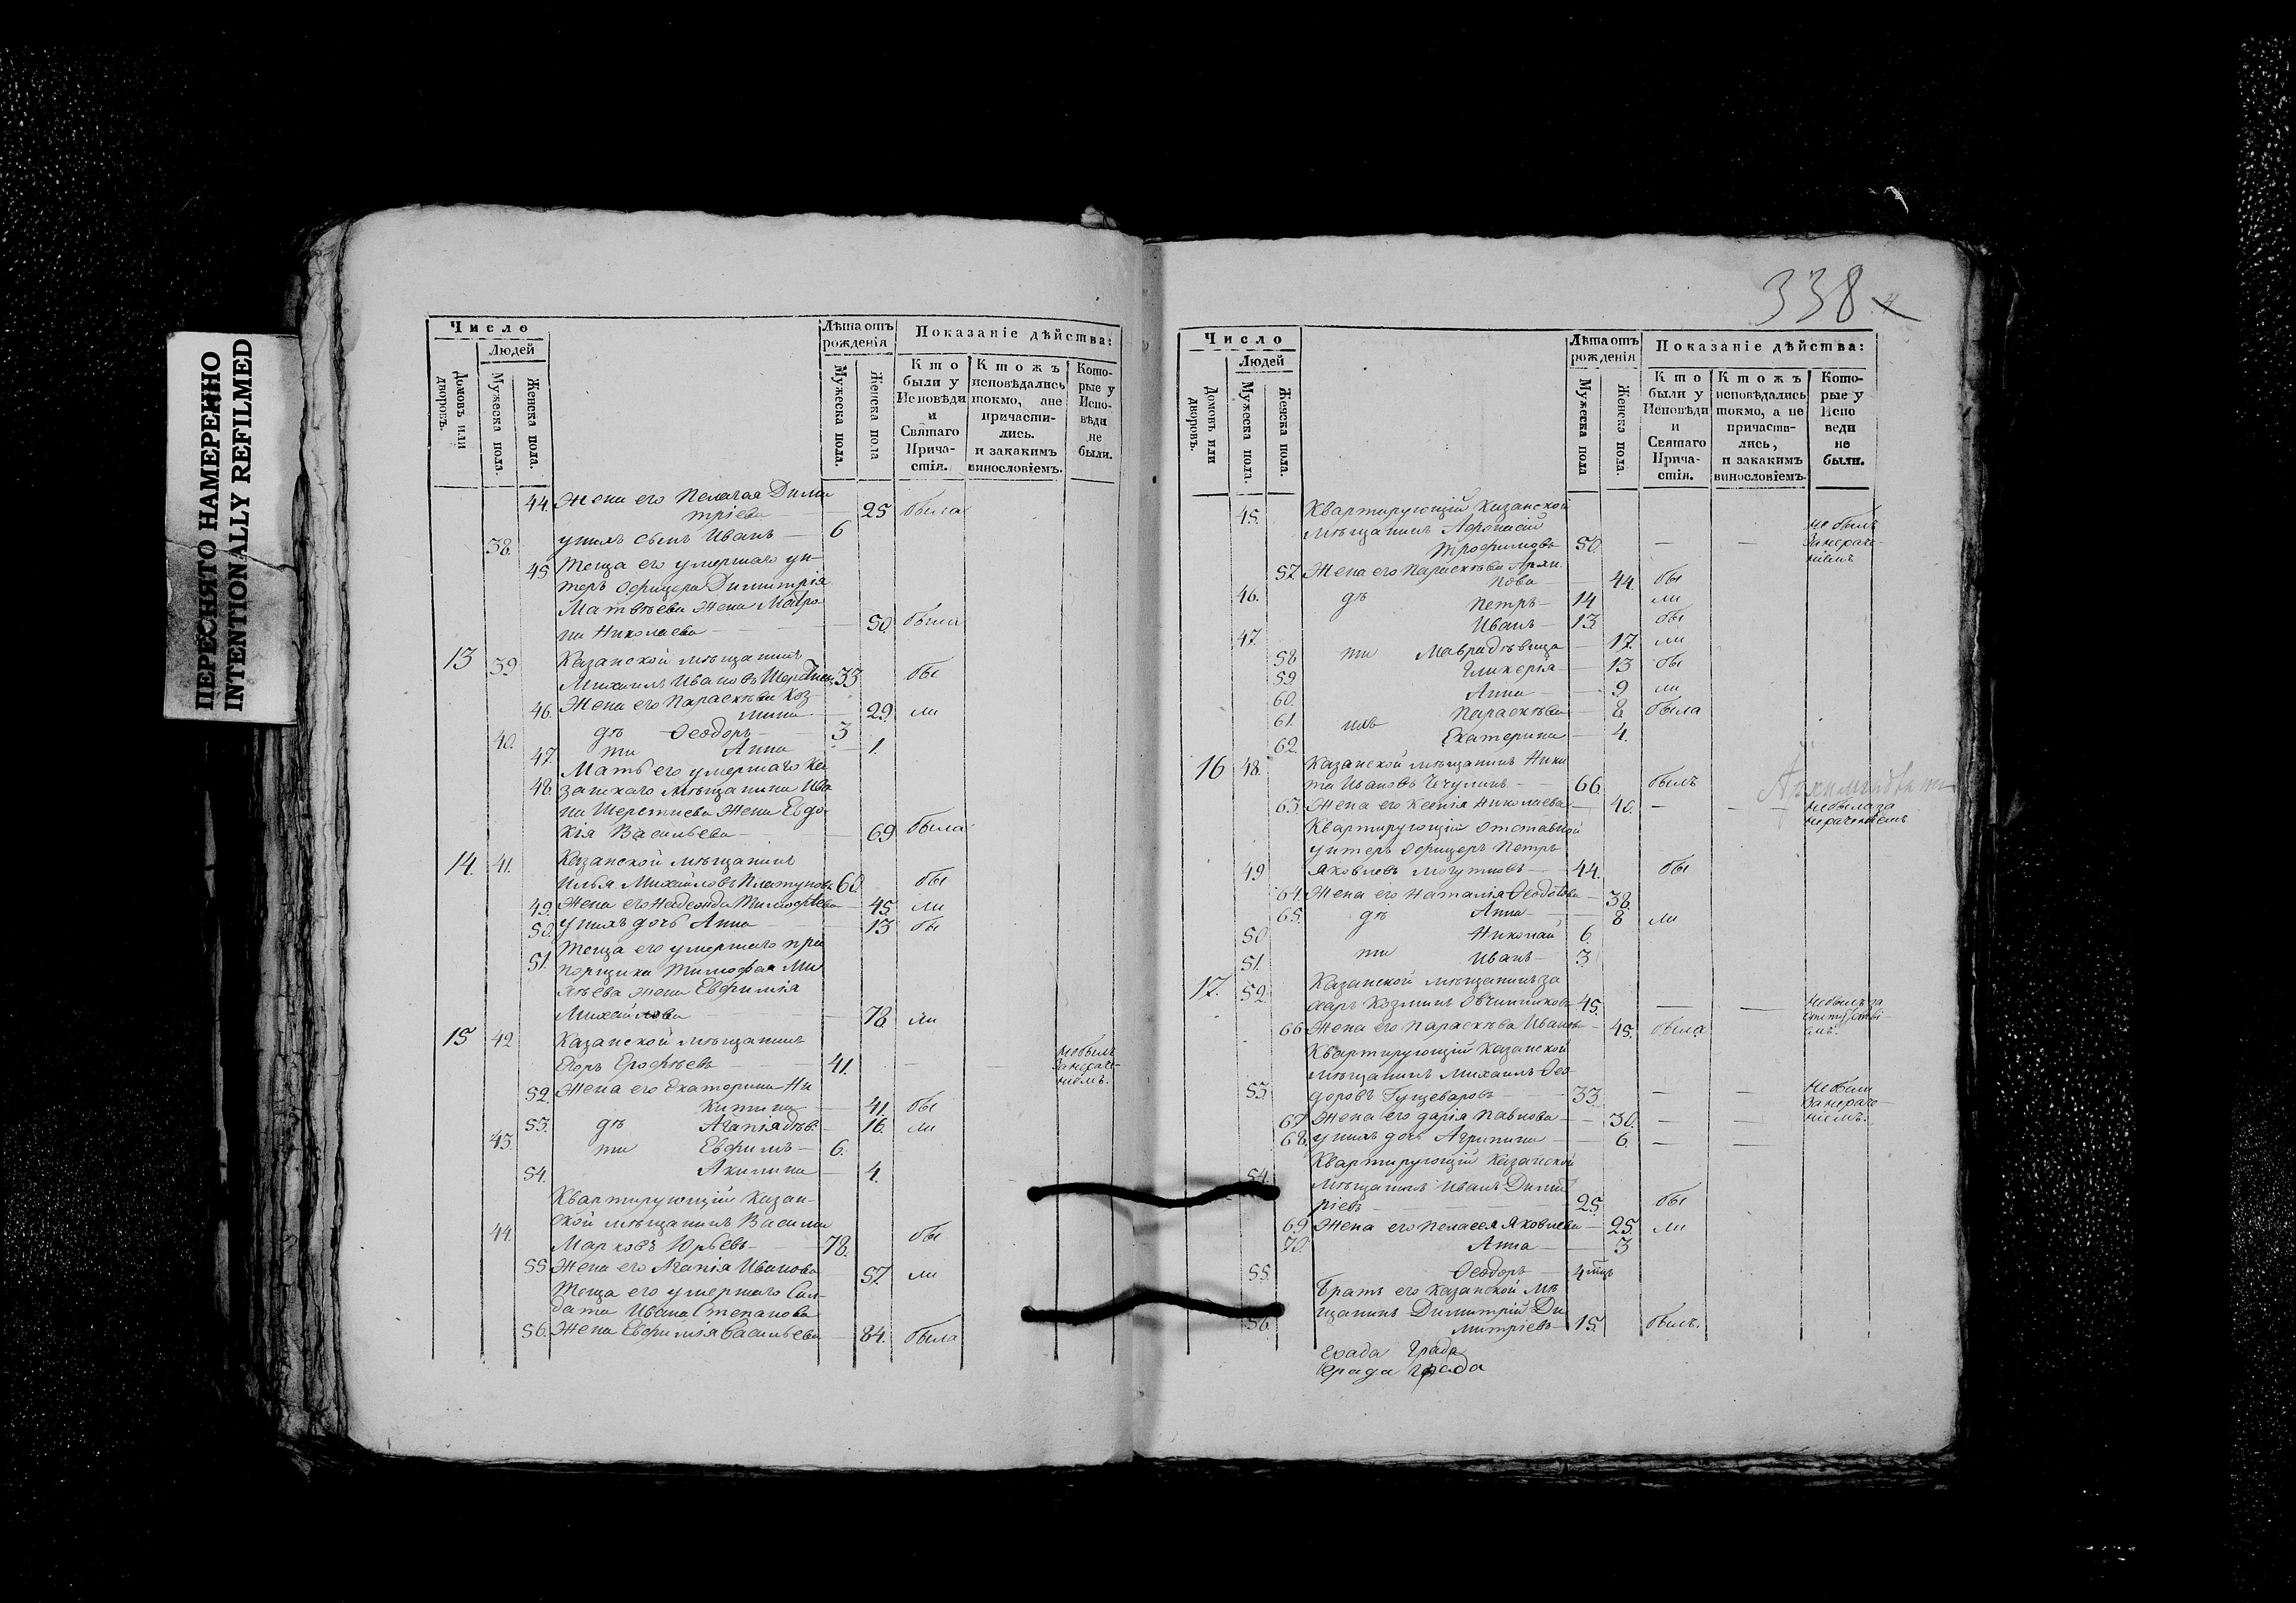 ПЕРЕСНЯТО НАМЕРЕННО
INTENTIONALLY REFILMED
Число
Людей
Домовъ или дворовъ.
Мужеска пола.
Женска пола.
Лѣта отъ рожденія
Мужеска пола.
Женска пола
Показаніе дѣйства:
Кто были у Исповѣди и Святаго Прича-стія.
Ктожъ исповѣдались токмо, ане причасти-лись. и закакимъ винословіемъ.
Кото-рые у Испо-вѣди не были.
44. Жена его Пелагея Дими
тріева — 25 была
38. у нихъ сынъ Иванъ — 6
45 Теща его умершаго ун-
теръ Офицера Димитрія
Матвѣева жена Мавра
на Николаева — 50. была
13 39 Казанской мѣщанинъ
Михаилъ Ивановъ 33 бы
46. Жена его Параскѣва Коз-
мина — 29. ли
40. дѣ Ѳеодоръ — 3
47. ти Анна — 1.
48. Мать его умершаго Ка
занскаго мѣщанина Ива
на Шеретнева жена Евдо-
кія Васильева — 69 была
14. 41. Казанской мѣщанинъ
Илья Михайловъ Платуновъ 60 бы
49. Жена его Надежда Тимофѣева — 45. ли
50. у нихъ дочь Анна — 13 бы
51. Теща его умершаго пра
порщика Тимофея Ми
жена Евфимія
Михайлова — 78 ли
15 42 Казанской мѣщанинъ
Егоръ Ерофѣевъ — 41. — небылъ
занераче-
ніемъ.
52. Жена его Екатерина Ни
китина — 41. бы
53. дѣ Агапія дѣв. — 16. ли
43. ти Евфимъ — 6.
54. Акилина — 4.
Квартирующій Казан-
ской мѣщанинъ Василий
44. Марковъ Юрьевъ — 78. бы
55 Жена его Агапія Иванова 57. ли
Теща его умершаго Сол-
дата Ивана Степанова
56. Жена Евфимія Васильева — 84. была
338
Число
Людей
Домовъ или дворовъ.
Мужеска пола.
Женска пола.
Лѣта отъ рожденія
Мужеска пола
Женска пола.
Показаніе дѣйства:
Кто были у Исповѣди и Святаго Прича-стія.
Ктожъ исповѣдались токмо, а не причасти-лись, и закакимъ винословіемъ.
Кото-рые у Испо веди не были.
45. Квартирующій Казанской
мѣщанинъ Афонасій
Трофимовъ 50. — — не былъ
занераче-
ніемъ
57. Жена его Параскѣва Архи
пова — 44. бы
46. дѣ Петръ — 14 ли
47. Иванъ — 13 бы
58 ти Мавра дѣвица — 17. ли
59. Гликерія — 13 бы
60. Анна — 9 ли
61. ихъ Параскѣва — 8 была
62. Екатерина — 4.
16 48. Казанской мѣщанинъ Ники
та Ивановъ Чечулинъ — 66. былъ
63. Жена его Ксенія Николаева — 40. — — небылаза
нераченіемъ
Квартирующій отставной
унтеръ Офицеръ Петръ
49 Яковлевъ — 44. бы
64. Жена его Наталія Ѳеодотова — 38.
65. дѣ Анна — 8 ли
50 Николай 6.
51. ти Иванъ — 3.
17. 52. Казанской мѣщанинъ За
харъ Козминъ Овчинниковъ 45. — — Небылъ за
отсутстві
емъ.
66 Жена его Параскѣва Иванова — 45. была
Квартирующій Казанской
мѣщанинъ Михаилъ Ѳео
53. доровъ — 33. — — Небыли
занераче-
ніемъ.
67. Жена его Дарія Павлова — 30. — —
68. у нихъ дочь Агрипина — 6. — —
Квартирующій Казанской
54. мѣщанинъ Иванъ Димит
ріевъ — 25 бы
69 Жена его Пелагея Яковлева — 25. ли
70. Анна — 3
55. Ѳеодоръ — 4 мцъ
Братъ его Казанской мѣ
щанинъ Димитрій Ди
56. митріевъ — 15. былъ.
града
града